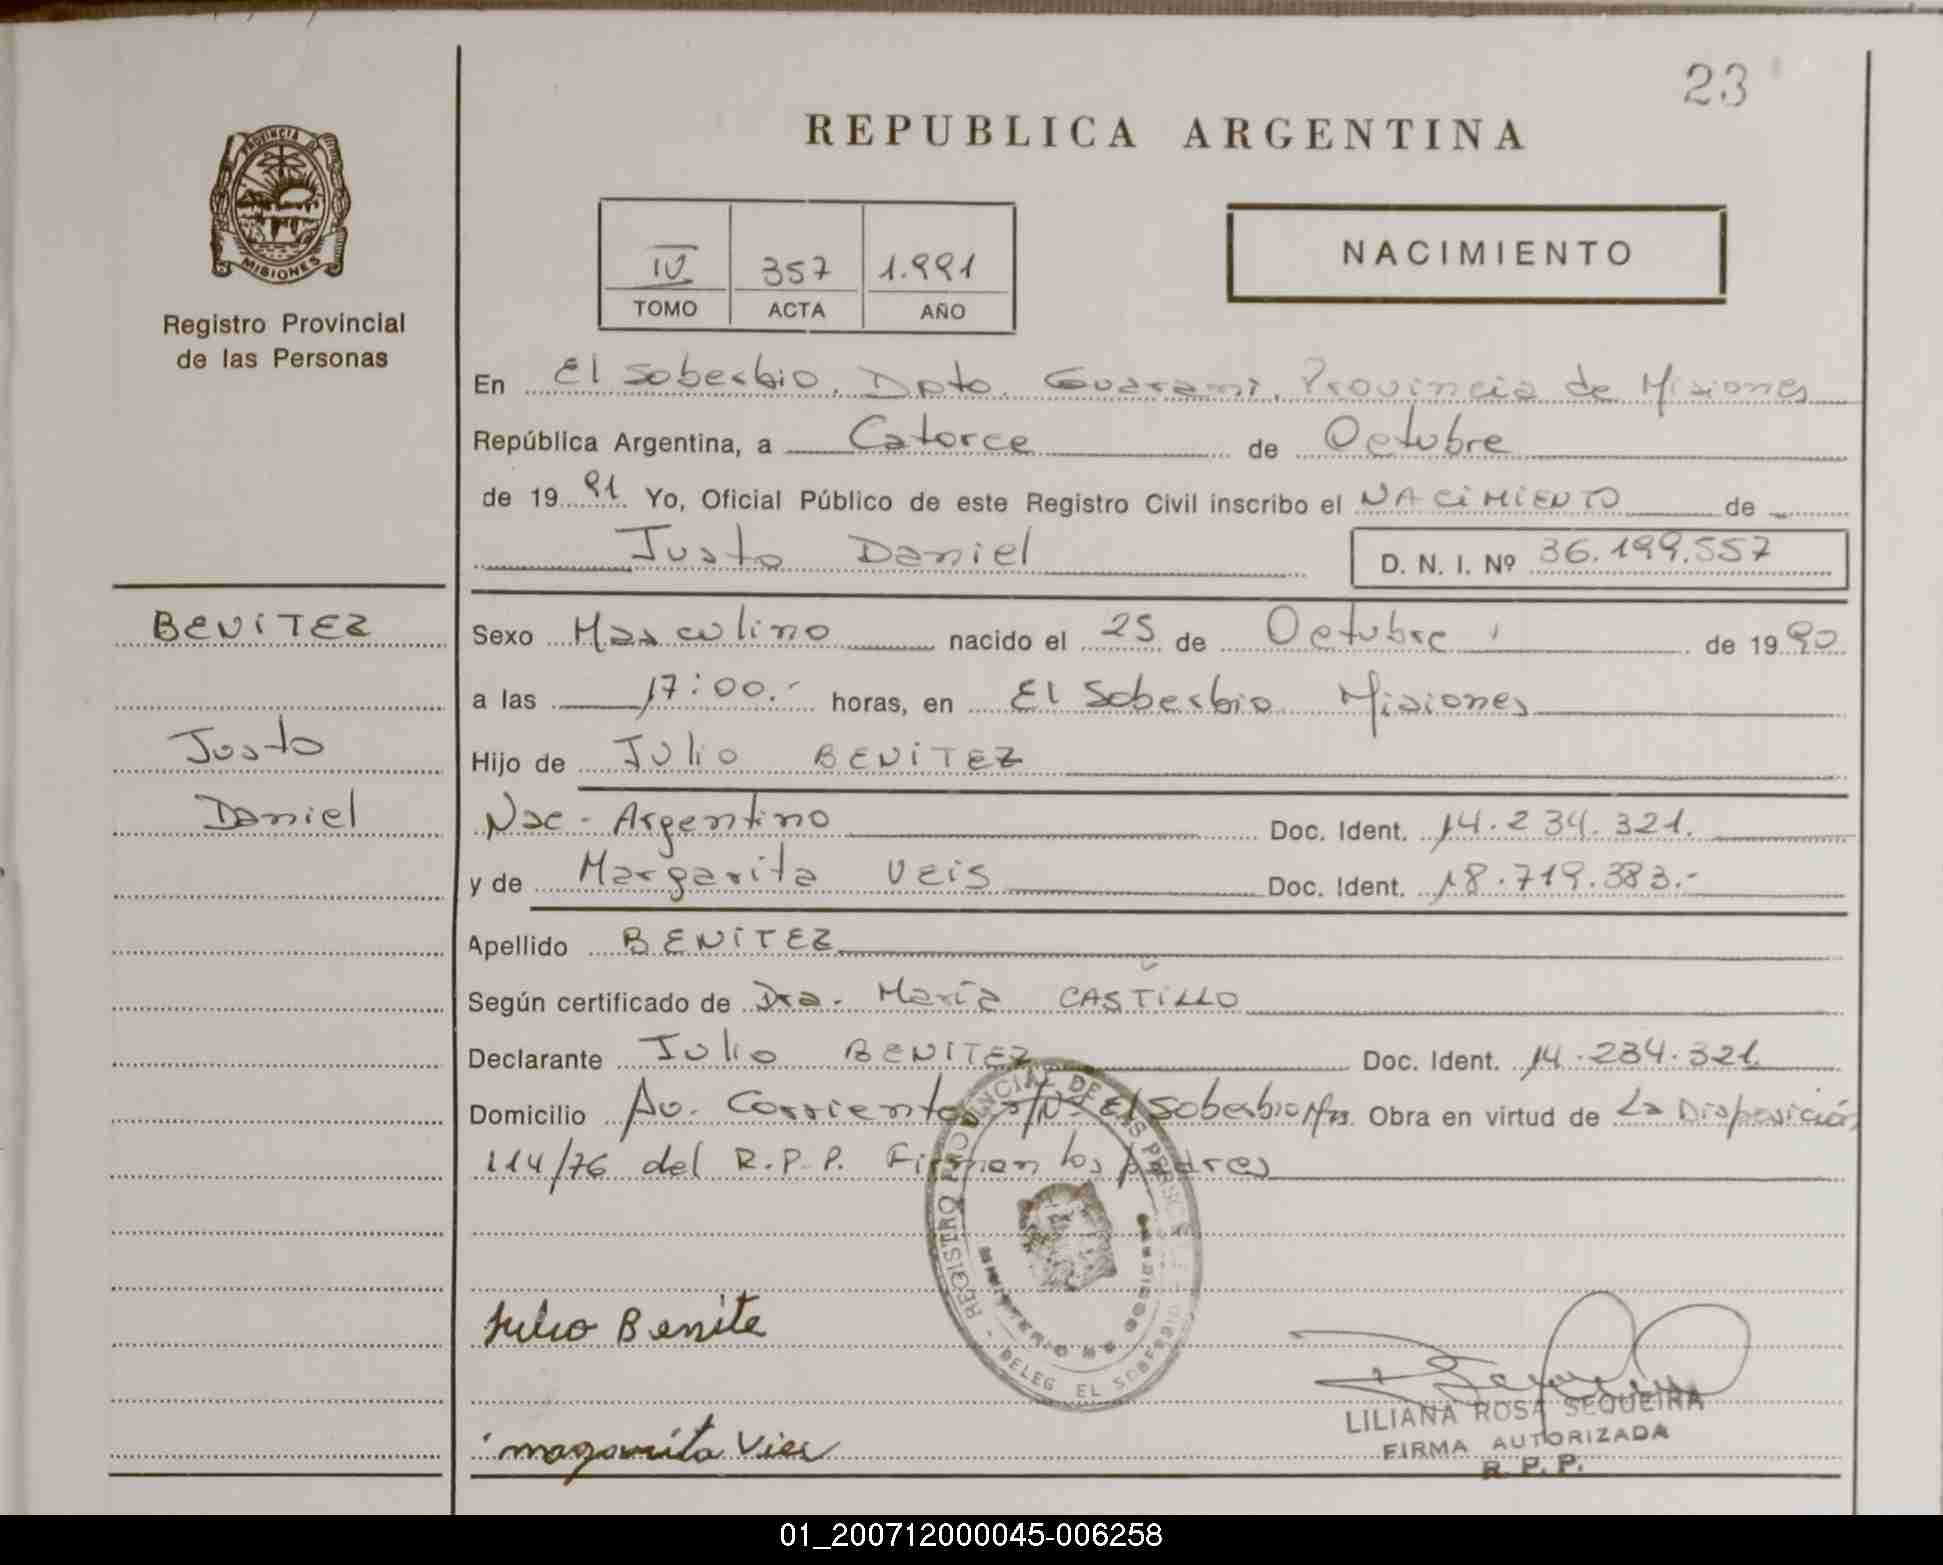 23
REPUBLICA ARGENTINA
PROVINCIA DE
MISIONES
Registro Provincial
de las Personas
IV 357 1.991
TOMO ACTA AÑO
NACIMIENTO
En El Soberbio, Dpto. Guarani, Provincia de Misiones
República Argentina, a Catorce de Octubre
de 1991 Yo, Oficial Público de este Registro Civil inscribo el NACIMIENTO de
Justo Daniel D. N. I. Nº 36.199.557
BENITEZ
Justo
Daniel
Sexo Masculino nacido el 25 de Octubre de 1990
a las 17:00.- horas, en El Soberbio Misiones
Hijo de Julio BENITEZ
Nac- Argentino Doc. Ident. 14.234.321.
y de Margarita Veis Doc. Ident. 18.719.383.-
Apellido BENITEZ
Según certificado de Dra. María CASTILLO
Declarante Julio BENITEZ Doc. Ident. 14.234.321
Domicilio Av. Corrientes s/Nº El Soberbio Mns. Obra en virtud de La Disposición
114/76 del R.P.P. Firman los padres
REGISTRO PROVINCIAL DE LAS PERSONAS
DELEG EL SOBERBIO
Julio Benite
magarita Vies
LILIANA ROSA SEQUEIRA
FIRMA AUTORIZADA
R. P. P.
01_200712000045-006258